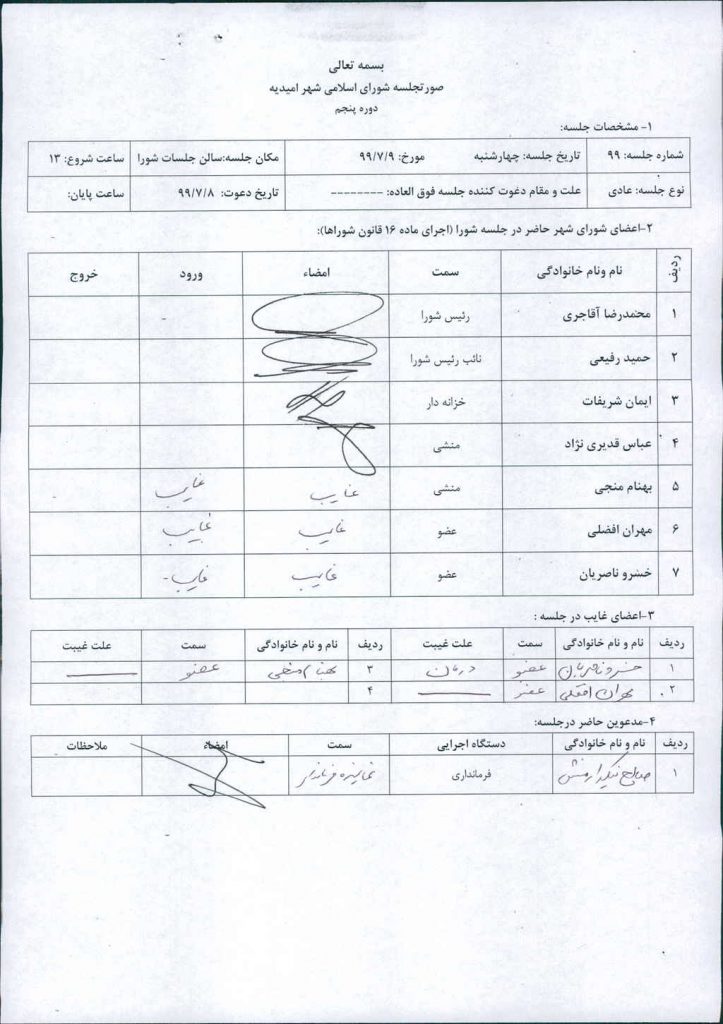 بسمه تعالی
صورتجلسه شورای اسلامی شهر امیدیه
دوره پنجم
۱- مشخصات جلسه:
شماره جلسه: ۹۹ تاریخ جلسه: چهارشنبه مورخ: ۹۹/۷/۹ مکان جلسه:سالن جلسات شورا ساعت شروع: ۱۳
نوع جلسه: عادی علت و مقام دغوت کننده جلسه فوق العاده: -------- تاریخ دعوت: ۹۹/۷/۸ ساعت پایان:
۲-اعضای شورای شهر حاضر در جلسه شورا (اجرای ماده ۱۶ قانون شوراها):
ردیف نام ونام خانوادگی سمت امضاء ورود خروج
۱ محمدرضا آقاجری رئیس شورا
۲ حمید رفیعی نائب رئیس شورا
۳ ایمان شریفات خزانه دار
۴ عباس قدیری نژاد منشی
۵ بهنام منجی منشی غایب غایب
۶ مهران افضلی عضو غایب غایب
۷ خسرو ناصریان عضو غایب غایب
۳-اعضای غایب در جلسه :
ردیف نام و نام خانوادگی سمت علت غیبت ردیف نام و نام خانوادگی سمت علت غیبت
۱ خسرو ناصریان عضو درمان ۳ بهنام منجی عضو
۲ مهران افضلی عضو ۴
۴-مدعوین حاضر درجلسه:
ردیف نام و نام خانوادگی دستگاه اجرایی سمت امضاء ملاحظات
۱ صالح فرمانداری نماینده فرماندار